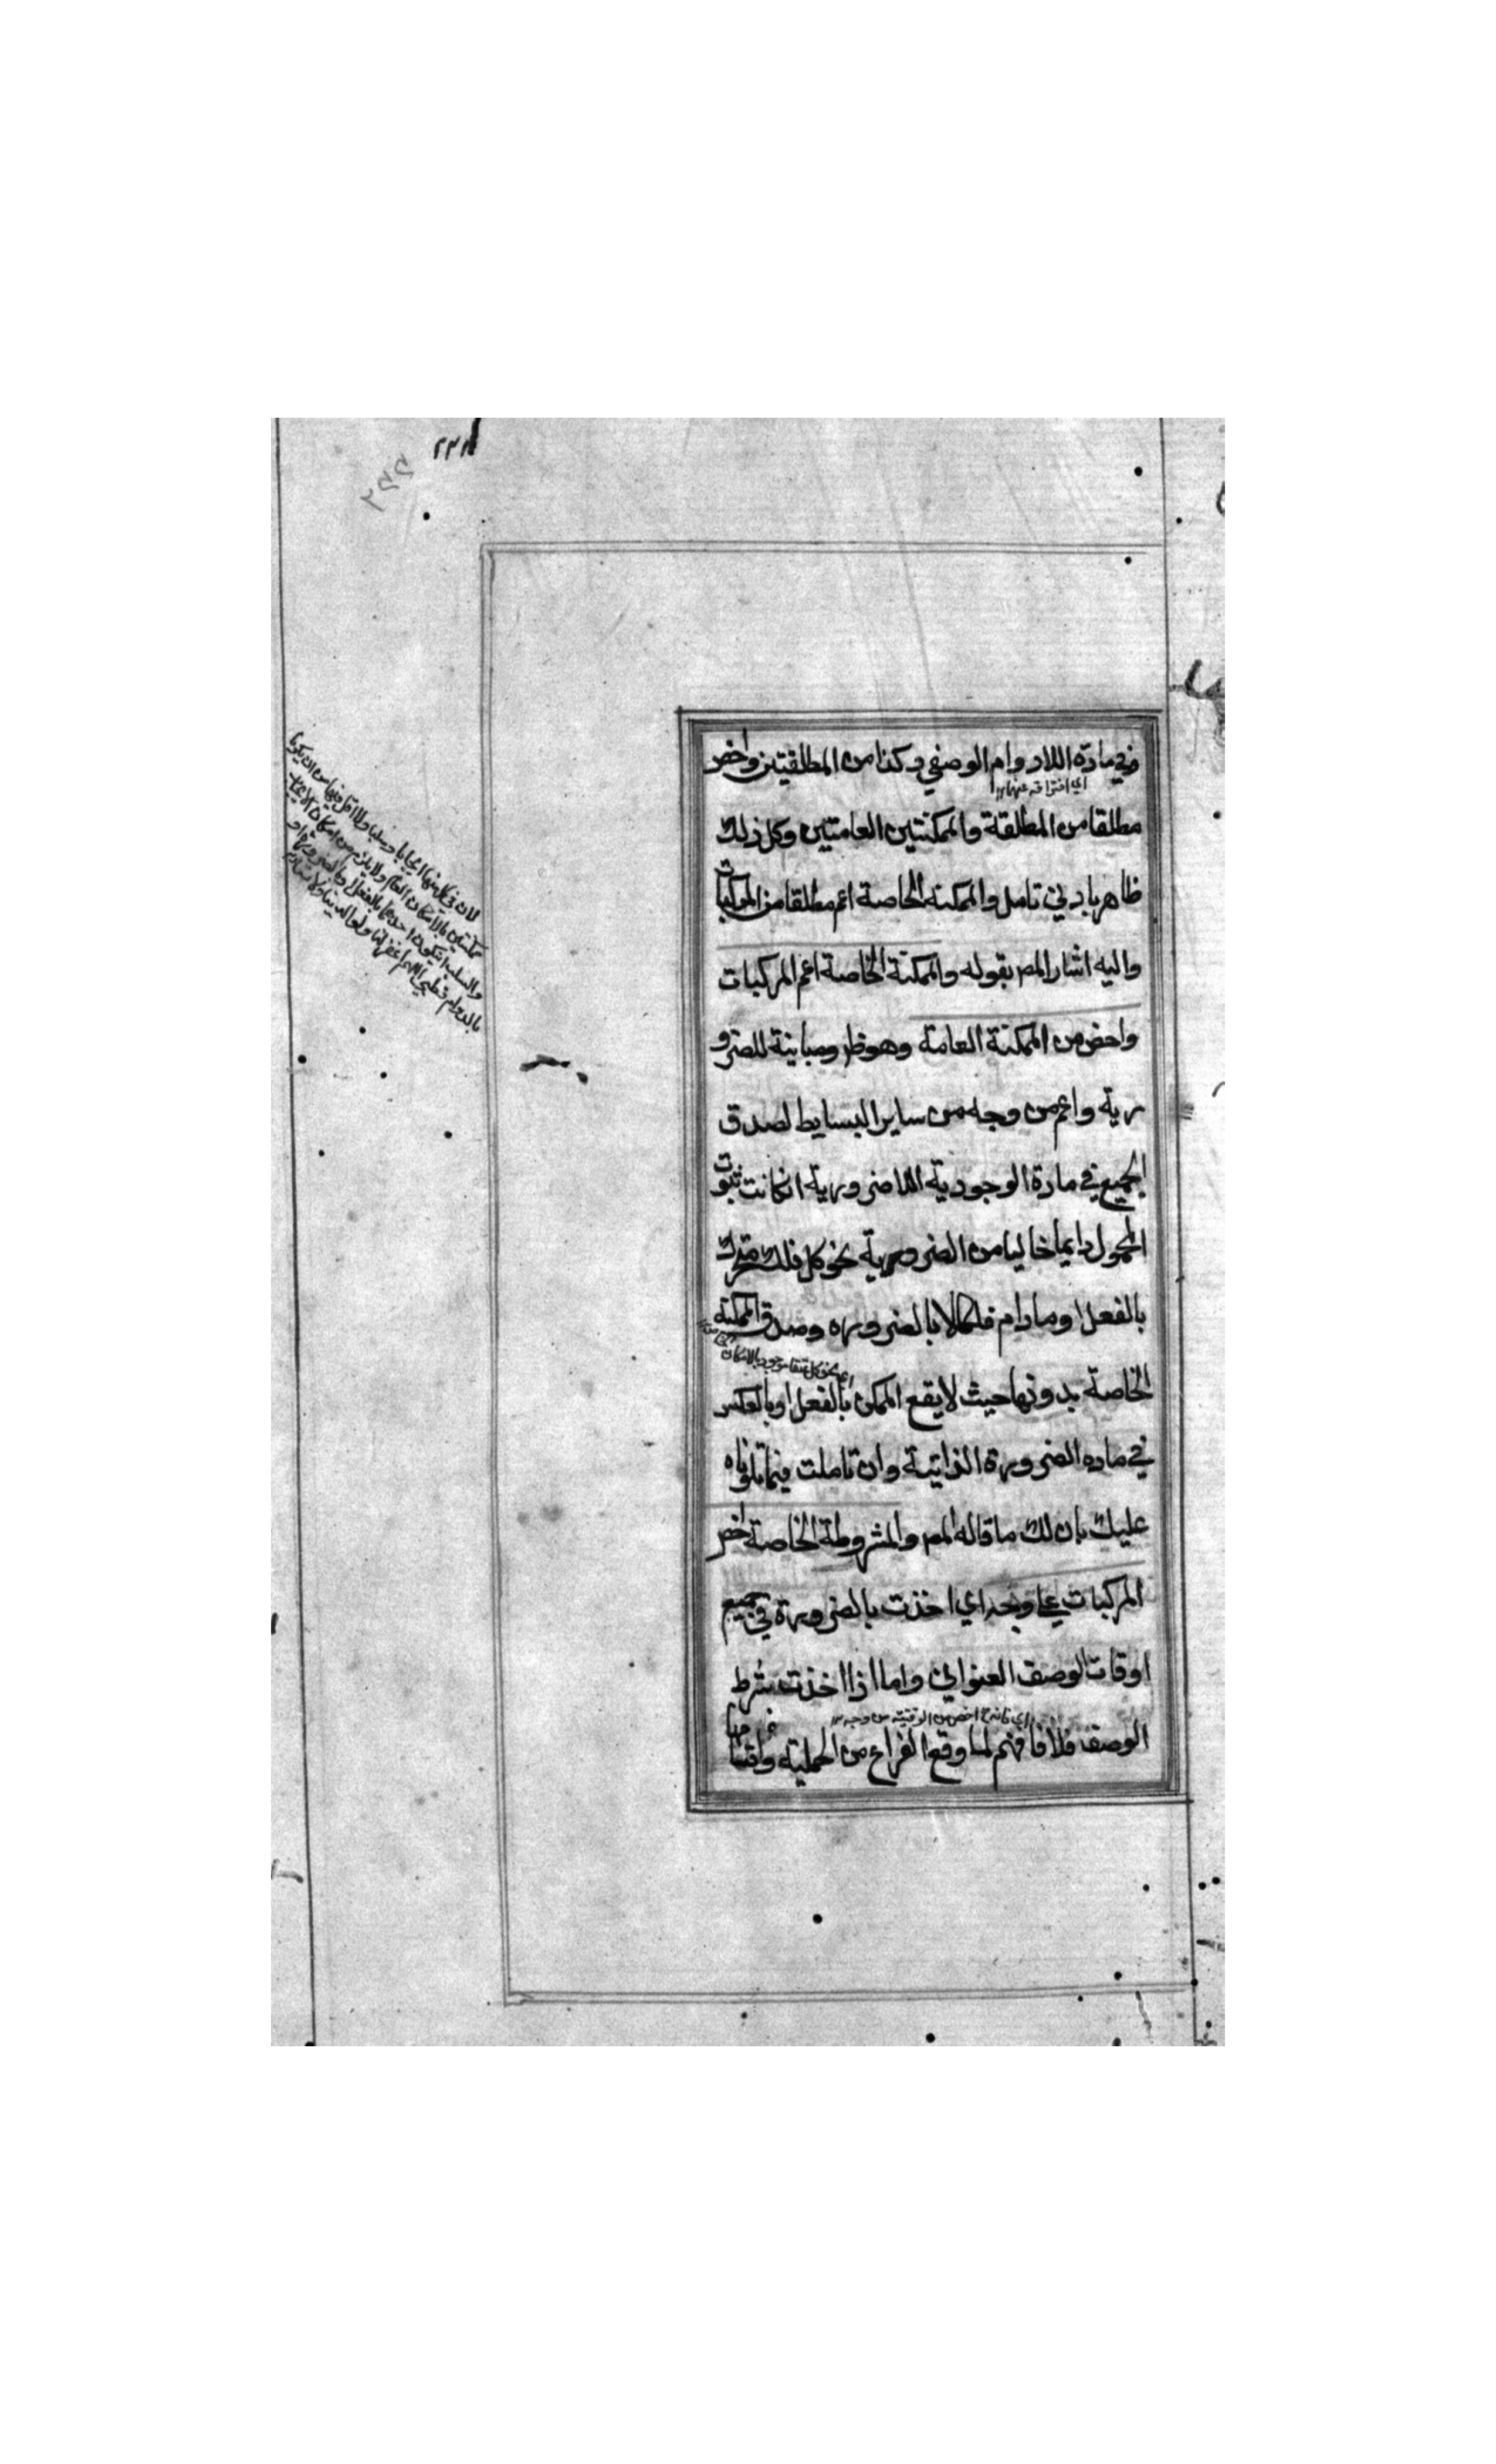 وفي مادة اللادوام الوصفي وكذا من المطلقتين واخص
اي افتراقه عنهما
مطلقا من المطلقة والممكنتين العامتين وكل ذلك
ظاهر بادني تامل والممكنه الخاصة اعم مطلقا من المركبات
واليه اشار المص بقوله والممكنة الخاصة اعم المركبات
واخص من الممكنة العامة وهو ظ ومباينة للضرو
رية واعم من وجه من ساير البسايط لصدق
الجميع في مادة الوجودية اللاضرورية انكانت ثبوت
المحمول دايما خاليا من الضرورية نحو كل فلك متحرك
بالفعل او مادام فلكا لا بالضروره وصدق الممكنة
نحو كل عنقا موجود بالامكان
الخاصة بدونها حيث لا يقع الممكن بالفعل او بالعكس
في ماده الضرورة الذاتية وان تاملت فيما تلوناه
عليك بان لك ما قاله المص والمشروطة الخاصة اخص
المركبات علي وجه اي اخذت بالضرورة في جميع
اوقات الوصف العنواني واما اذا اخذت بشرط
اي فانه ح اخص من الوقتيه من وجه
الوصف فلا فافهم لما وقع الفراغ من الحملية واقسامها
لان في كل منها ايجابا وسلبا ولا اقل فيها من ان يكونا
ممكنتين بالامكان العام ولا يلزم من امكان الايجاب
والسلب ان يكون احدهما بالفعل او بالضرورة او
بالدوام قطبي
٢٢٨